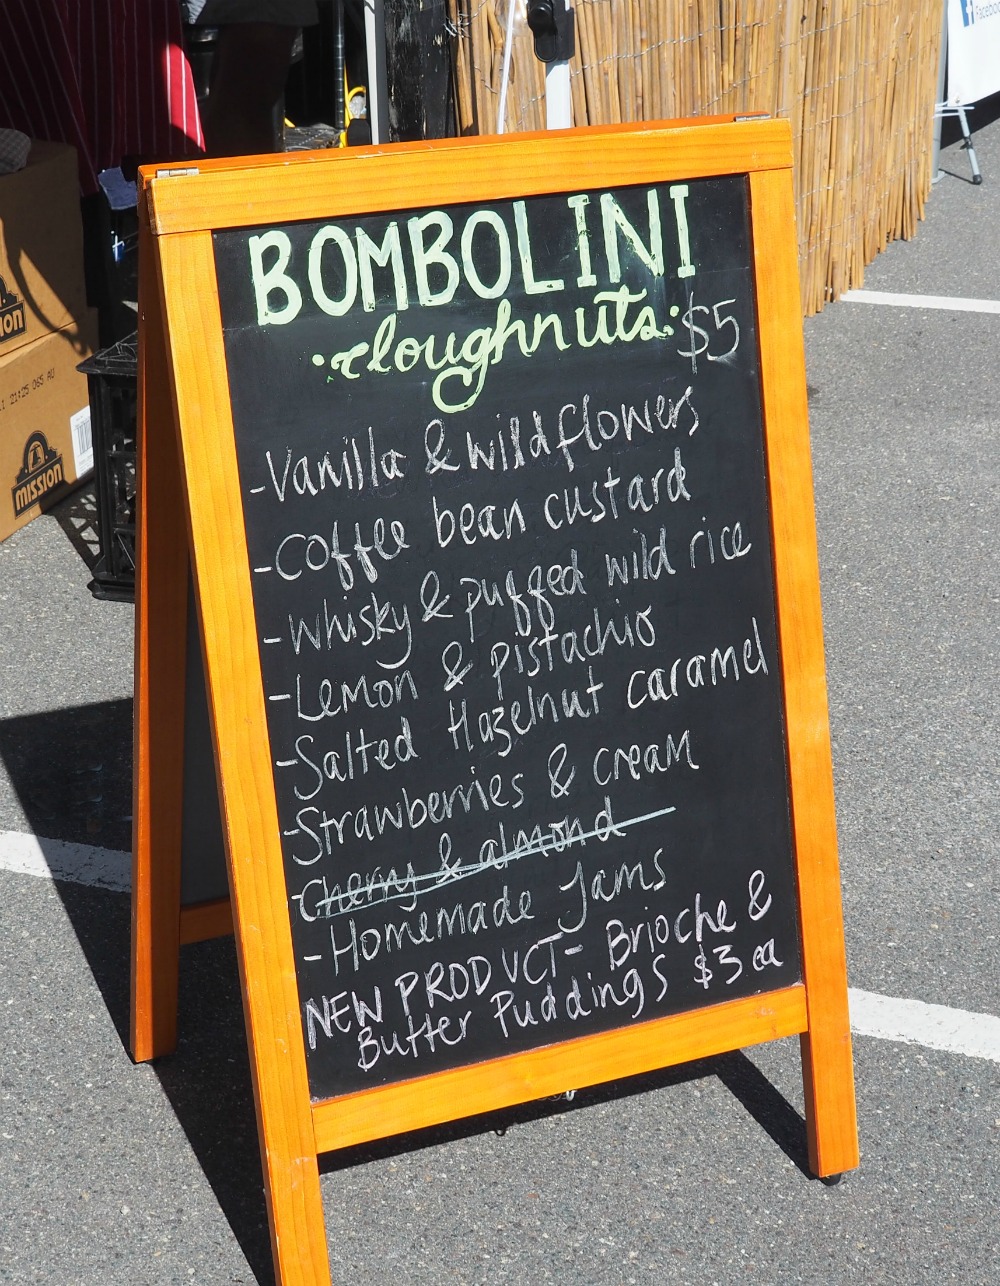 BOMBOLINI
·doughnuts· $5
-Vanilla & wildflowers
-Coffee bean custard
-Whisky & puffed wild rice
-Lemon & pistachio
-Salted Hazelnut caramel
-Strawberries & cream
-Cherry & almond
-Homemade Jams
NEW PRODUCT- Brioche &
Butter Puddings $3 ea
MISSION
21:25 065 AU
Facebook